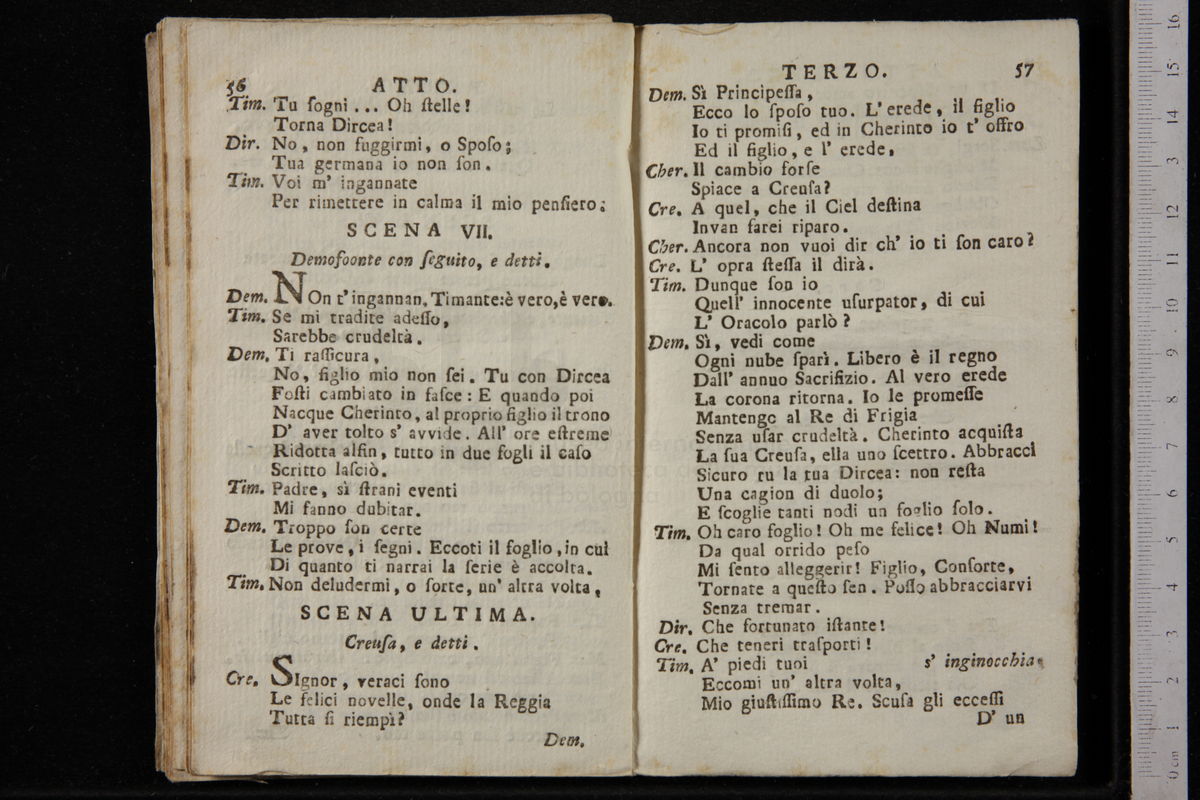 56 ATTO.
Tim. Tu ſogni... Oh ſtelle!
Torna Dircea!
Dir. No, non fuggirmi, o Spoſo;
Tua germana io non ſon.
Tim. Voi m' ingannate
Per rimettere in calma il mio penſiero;
SCENA VII.
Demofoonte con ſeguito, e detti.
Dem. NOn t' ingannan, Timante: è vero, è vero.
Tim. Se mi tradite adeſſo,
Sarebbe crudeltà.
Dem. Ti raſſicura,
No, figlio mio non ſei. Tu con Dircea
Foſti cambiato in faſce: E quando poi
Nacque Cherinto, al proprio figlio il trono
D' aver tolto s' avvide. All' ore eſtreme
Ridotta alfin, tutto in due fogli il caſo
Scritto laſciò.
Tim. Padre, sì ſtrani eventi
Mi fanno dubitar.
Dem. Troppo ſon certe
Le prove, i ſegni. Eccoti il foglio, in cui
Di quanto ti narrai la ſerie è accolta.
Tim. Non deludermi, o ſorte, un' altra volta,
SCENA ULTIMA.
Creuſa, e detti.
Cre. SIgnor, veraci ſono
Le felici novelle, onde la Reggia
Tutta ſi riempì?
Dem.
TERZO. 57
Dem. Sì Principeſſa,
Ecco lo ſpoſo tuo. L' erede, il figlio
Io ti promiſi, ed in Cherinto io t' offro
Ed il figlio, e l' erede.
Cher. Il cambio forſe
Spiace a Creuſa?
Cre. A quel, che il Ciel deſtina
Invan farei riparo.
Cher. Ancora non vuoi dir ch' io ti ſon caro?
Cre. L' opra ſteſſa il dirà.
Tim. Dunque ſon io
Quell' innocente uſurpator, di cui
L' Oracolo parlò?
Dem. Sì, vedi come
Ogni nube ſparì. Libero è il regno
Dall' annuo Sacrifizio. Al vero erede
La corona ritorna. Io le promeſſe
Mantengo al Re di Frigia
Senza uſar crudeltà. Cherinto acquiſta
La ſua Creuſa, ella uno ſcettro. Abbracci
Sicuro tu la tua Dircea: non reſta
Una cagion di duolo;
E ſcoglie tanti nodi un foglio ſolo.
Tim. Oh caro foglio! Oh me felice! Oh Numi!
Da qual orrido peſo
Mi ſento alleggerir! Figlio, Conſorte,
Tornate a queſto ſen. Poſſo abbracciarvi
Senza tremar.
Dir. Che fortunato iſtante!
Cre. Che teneri traſporti!
Tim. A' piedi tuoi s' inginocchia.
Eccomi un' altra volta,
Mio giuſtiſſimo Re. Scuſa gli ecceſſi
D' un